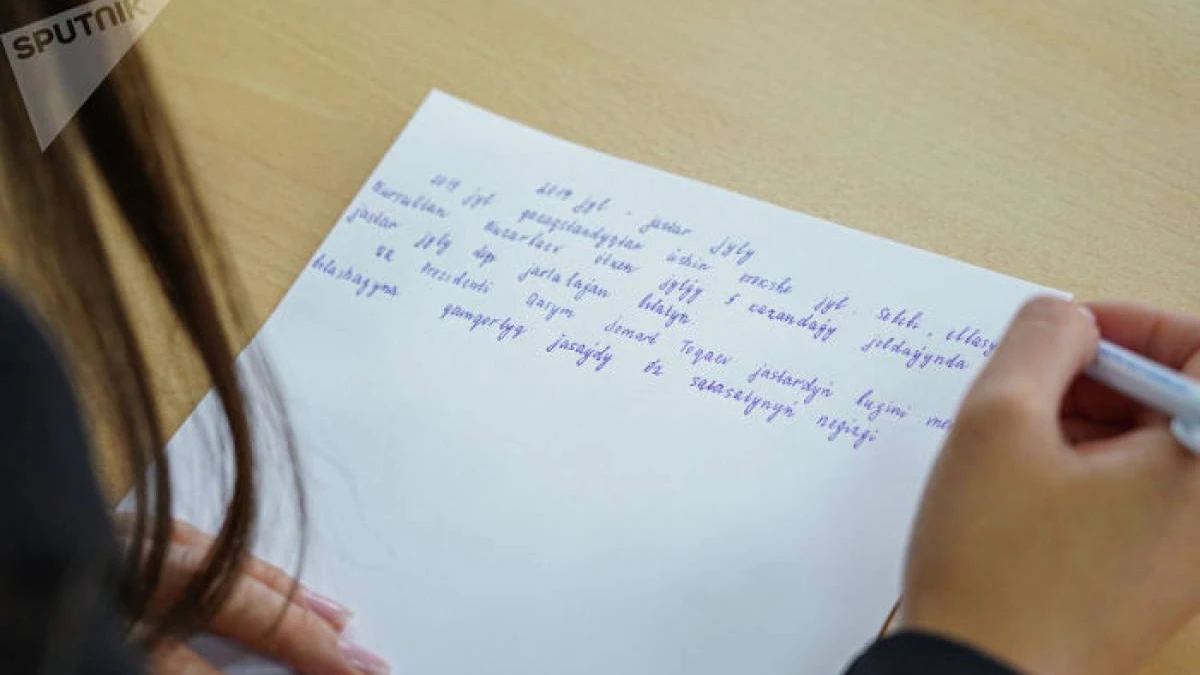 SPUTNIK
2019 jyl - jastar jyly
2019 jyl qazaqstandyqtar úshin erekshe jyl. Sebebi, elbasy
Nursultan Nazarbaev ótken jylǵy 5 qazandaǵy joldaýynda
jastar jyly dep jarialaǵan bolatyn.
QR Prezidenti Qasym Jomart Toqaev jastardyń búgini men
bolashaǵyna qamqorlyq jasaýdy óz saiasatynyń negizgi